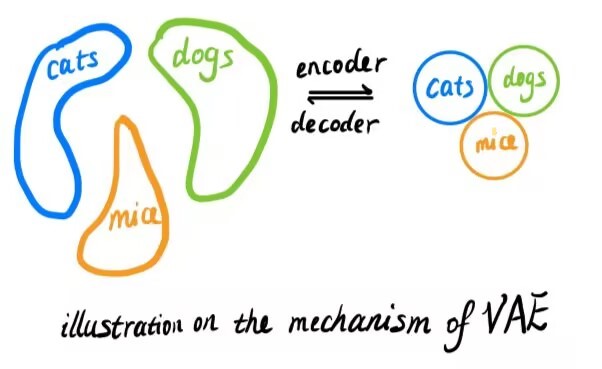 cats
dogs
mice
encoder
decoder
cats
dogs
mice
illustration on the mechanism of VAE